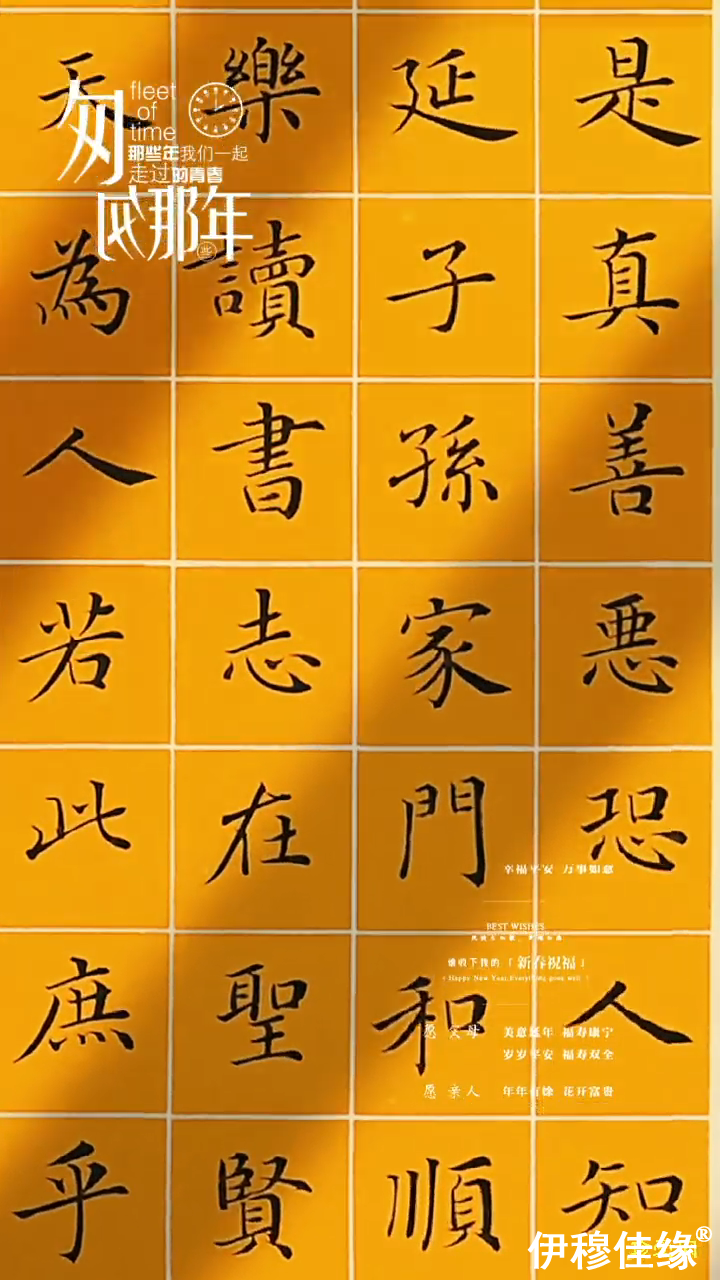 是真善悪恐人知
延子孫家門和順
樂讀書志在聖賢
天為人若此庶乎
匆匆那年
fleet
of
time
那些年我们一起
走过的青春
幸福平安 万事如意
BEST WISHES
请收下我的「新春祝福」
Happy New Year,Everything goes well
愿父母 美意延年 福寿康宁
岁岁平安 福寿双全
愿亲人 年年有馀 花开富贵
伊穆佳缘®